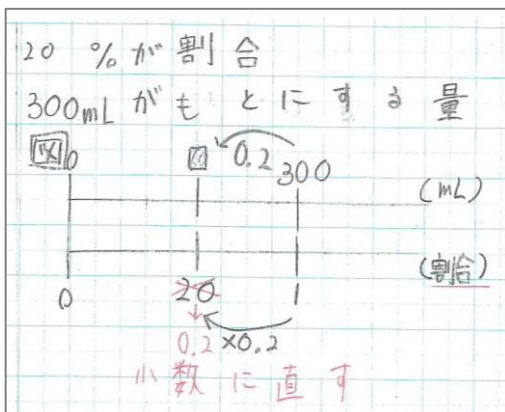 20 %が割合
300mLがもとにする量
図 0 □ 0.2 300 (mL)
0 20 1 (割合)
0.2 ×0.2
小数に直す